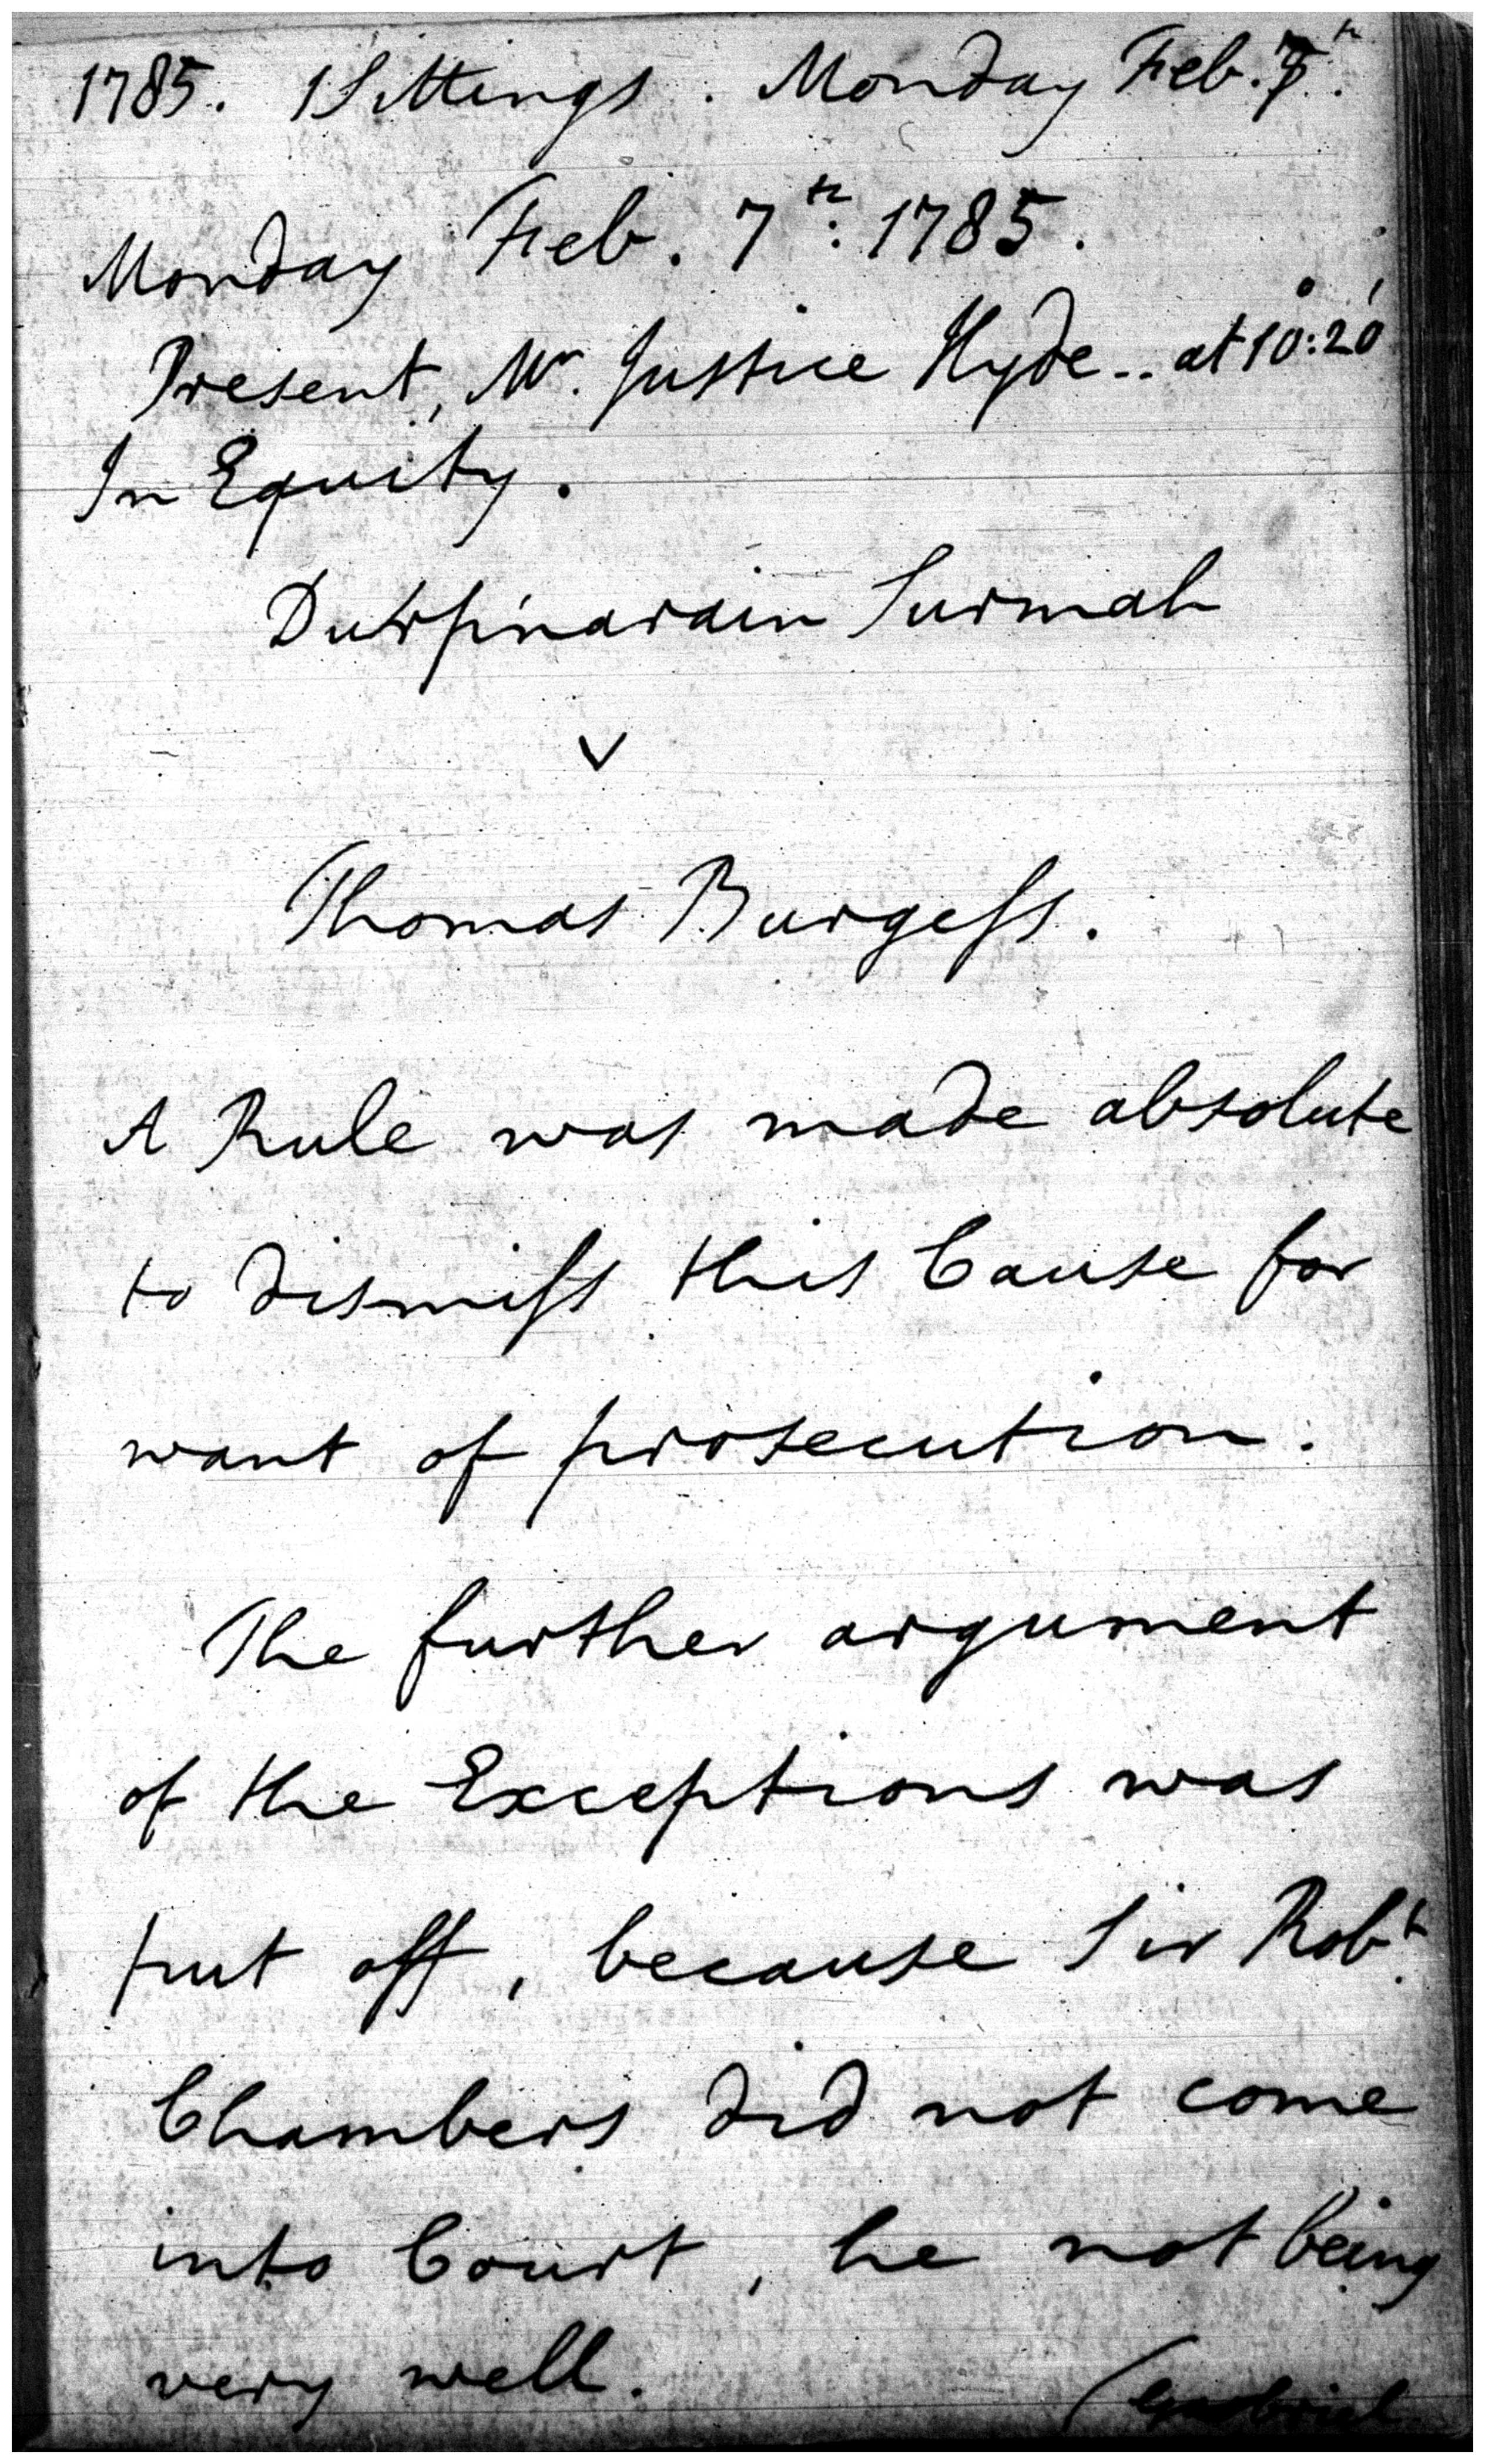 1785. Sittings. Monday Feb. 7th.
Monday Feb. 7th: 1785.
Present, Mr. Justice Hyde.. at 10°:20'
In Equity.
Surmah
v
Thomas Burgess.
A Rule was made absolute
to dismiss this Cause for
want of prosecution.
The further argument
of the Exceptions was
put off, because Sir Robt.
Chambers did not come
into Court, he not being
very well.
(Gabriel